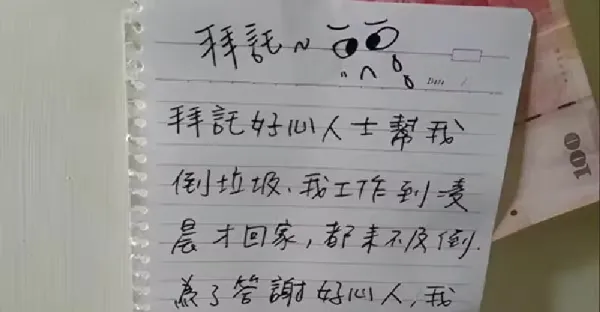 拜託~
Date
拜託好心人士幫我
倒垃圾、我工作到凌
晨才回家，都來不及倒.
為了答謝好心人，我
100